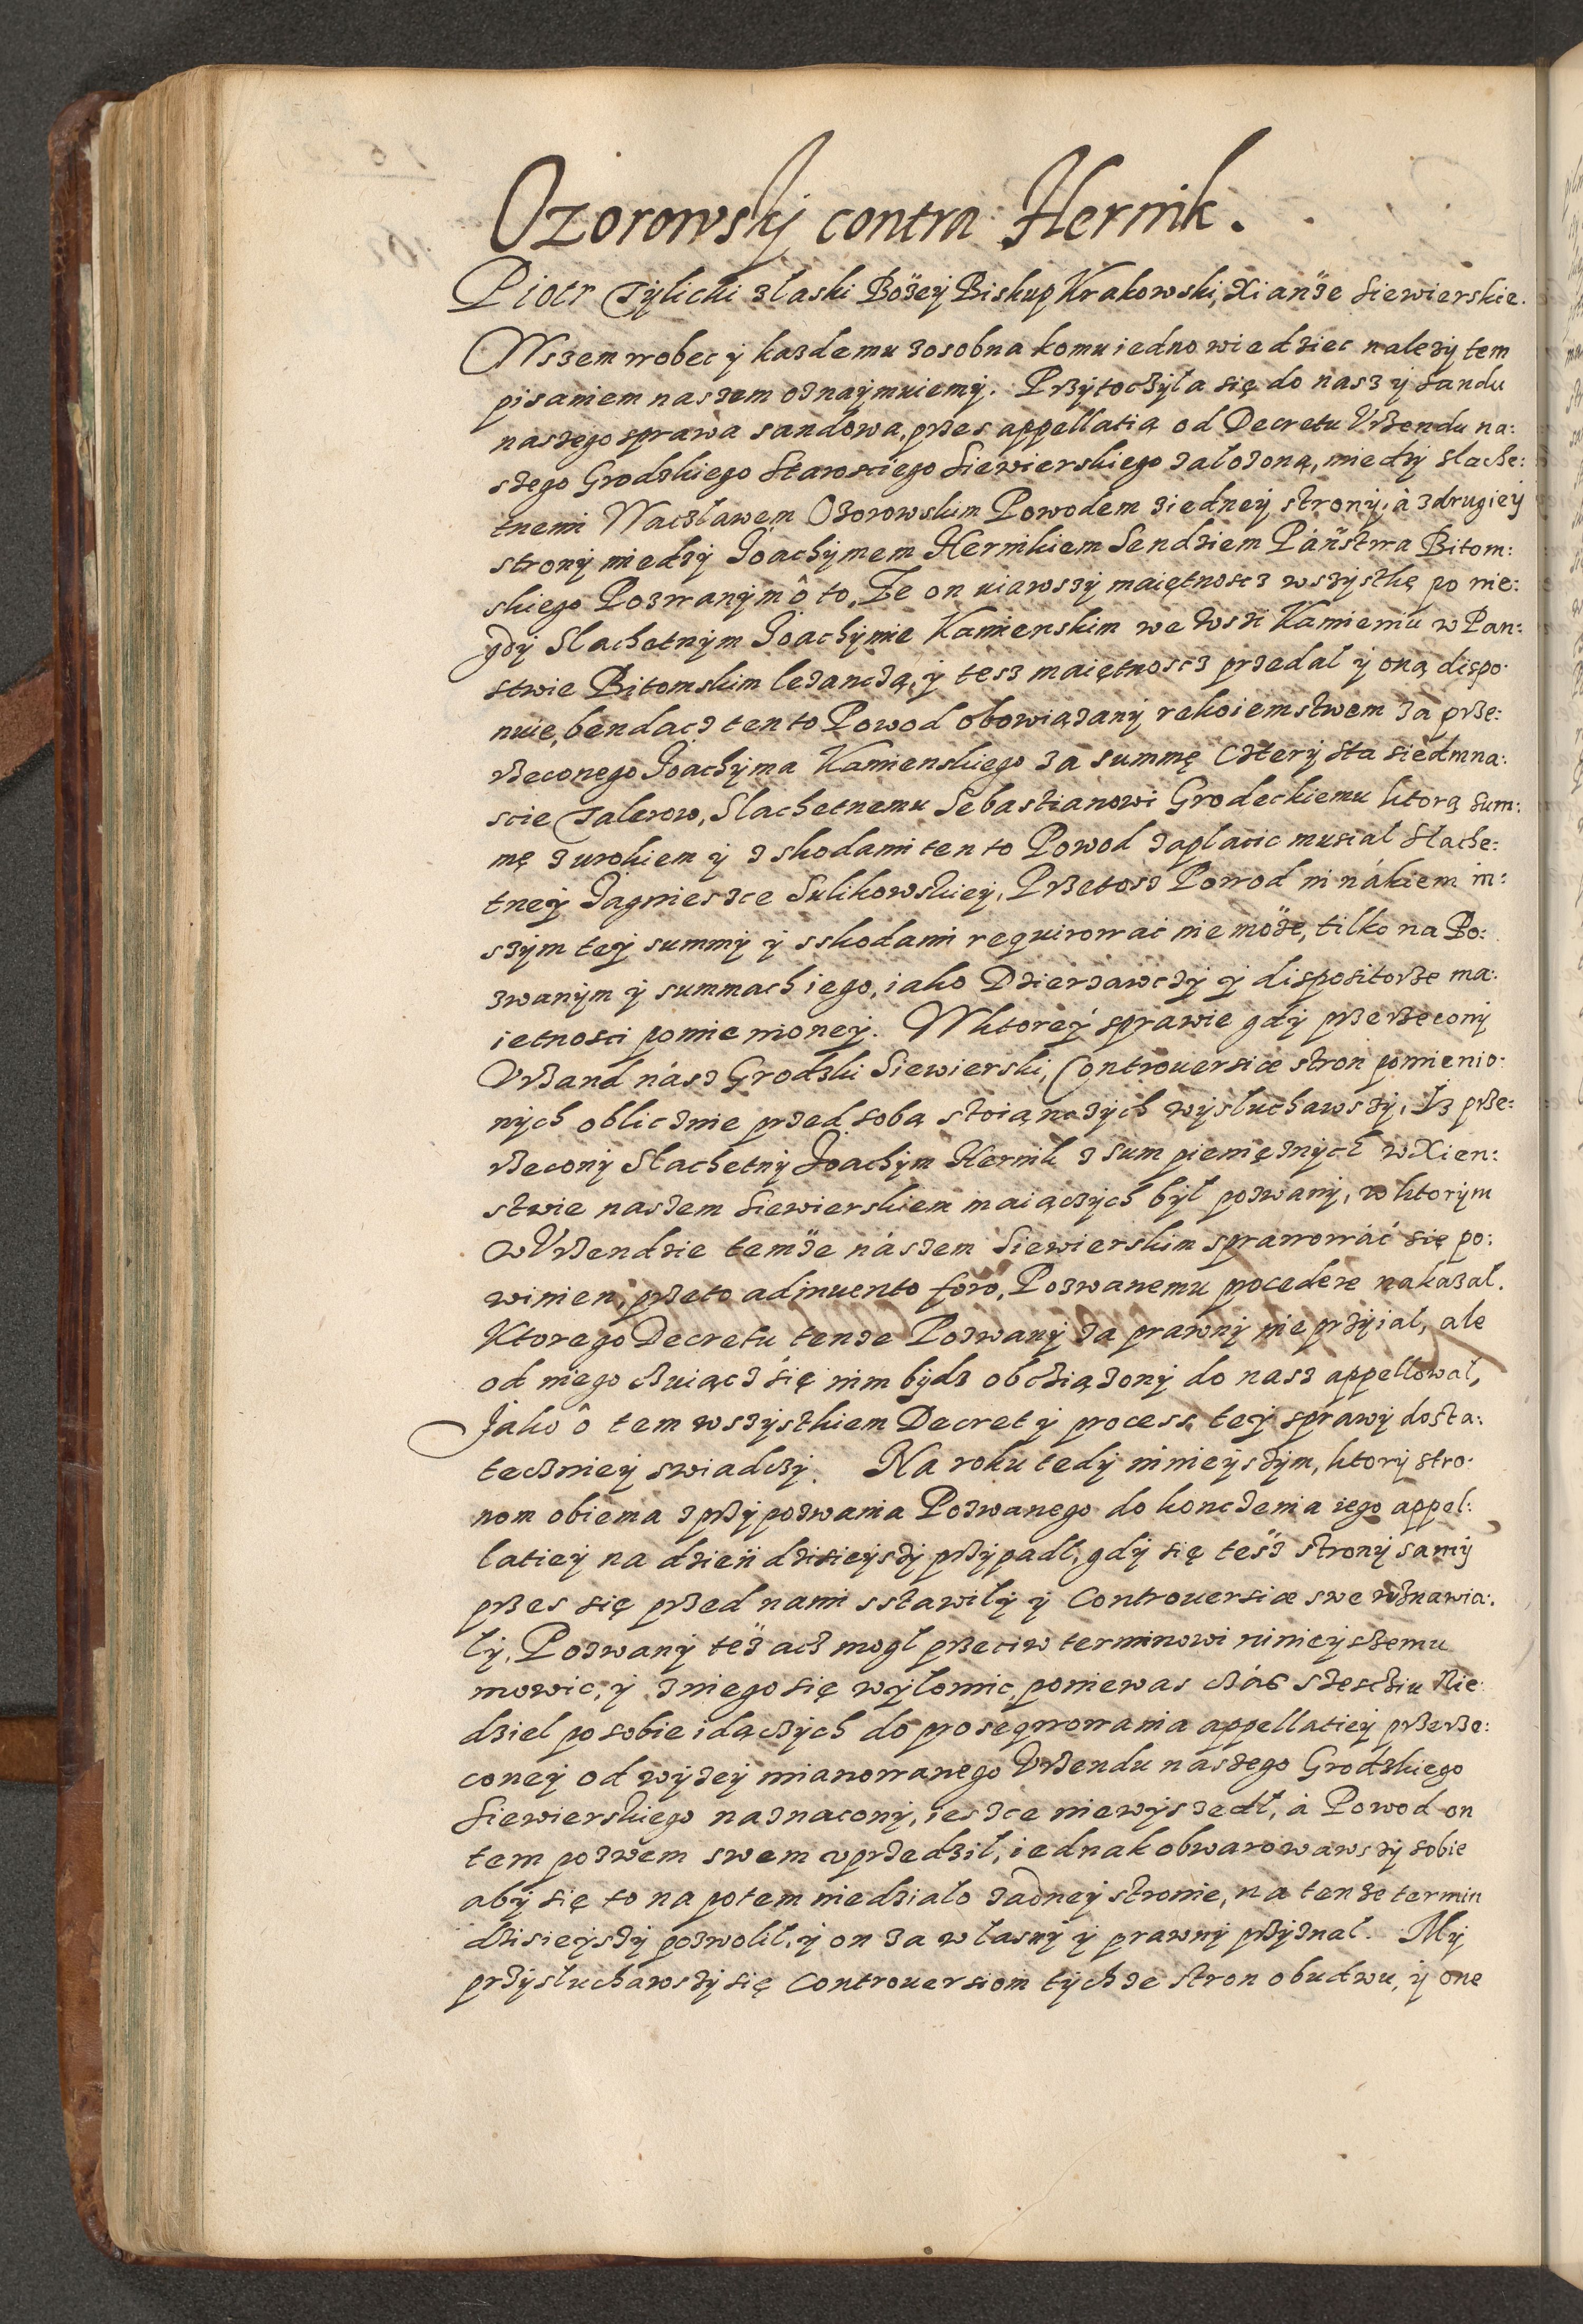 Ozorowskÿ contra Hernik.
Piotr Tÿlicki z łaski Bożeÿ Biskup Krakowski, Xianże Siewierskie.
Wszem wobec ÿ kazdemu zosobna komu iedno wiedziec nalezÿ tem
pisaniem naszem oznaÿmuiemÿ. Przÿtoczÿła się do nasz ÿ sandu
naszego sprawa sandowa, przes appellatią od Decretu Vrzendu na:
szego Grodzkiego Starosciego Siewierskiego załozoną, miedzÿ slache:
tnemi Wacsławem Ozorowskim Powodem ziedneÿ stronÿ, à zdrugieÿ
stronÿ miedzÿ Joachÿmem Hernikiem Sendziem Państwa Bitom:
skiego Pozwanÿm ô to, Że on uiawszÿ maiętnoscz wszÿstkę po nie:
gdÿ Slachetnÿm Joachÿmie Kamienskim we wszi Kamieniu w Pan:
stwie Bitomskim lezanczą, ÿ tesz maiętnoscz przedal ÿ oną dispo:
nuie, bendacz tento Powod obowiązanÿ rekoiemstwem za prze:
rzeconego Joachÿma Kamienskiego za summę czterÿ sta siedmna:
scie Talerow, Slachetnemu Sebastianowi Grodeckiemu ktorą sum:
mę z urokiem ÿ z skodami tento Powod zaplacic musial Slache:
tneÿ Jagnieszce Sulikowskieÿ, Przetosz Powod ni nákiem in:
szÿm teÿ summÿ ÿ sskodami requirowac nie może, tilko na Po:
zwanÿm ÿ summach iego, iako Dzierzawczÿ ÿ dispositorze ma:
ietnosci pomienioneÿ. W ktoreÿ sprawie gdÿ przerzeconÿ
Vrzand nász Grodzki Siewierski, Controuersiæ stron pomienio:
nÿch oblicznie przed sobą stoiąnczÿch wÿsłuchawszÿ, Iz prze:
rzeconÿ Slachetnÿ Joachÿm Hernik z sum pieniężnÿch w Xien:
stwie naszem Siewierskiem maiączÿch bÿł pozwanÿ, w ktorÿm
w Vrzendzie temże nászem Siewierskim sprawowáć się po:
winien, przeto adinuento foro, Pozwanemu pocedere nakazal.
Ktorego Decretu tenze Pozwanÿ za prawnÿ nie przÿial, ale
od niego czuiącz się nim bÿdz obcziązonÿ do nasz appellowal,
Jako ô tem wszÿstkiem Decret ÿ process teÿ sprawÿ dosta:
teczniej swiadczÿ. Na roku tedÿ ninieÿszÿm, ktorÿ stro:
nom obiema z przÿpozwania Pozwanego do konczenia iego appel:
latieÿ na dzień dzisieÿszÿ przÿpadl, gdÿ się tesz stronÿ samÿ
przes się przed nami sstawiłÿ ÿ Controuersiæ swe wznawia:
lÿ, Pozwanÿ też acz mogl przeciw terminowi ninieÿszemu
mowic, ÿ zniego się wÿlomic, poniewas czás szesciu Nie:
dziel po sobie idączÿch do prosequowania appellatieÿ przerze:
coneÿ od wÿzeÿ mianowanego Vrzendu naszego Grodzkiego
Siewierskiego naznaconÿ, ieszce niewÿszedł, à Powod on
tem pozwem swem vprzedził, iednak obwarowawszÿ sobie
abÿ się to na potem niedzialo zadneÿ stronie, na tenze termin
dzisieÿszÿ pozwolił, ÿ on za własnÿ ÿ prawnÿ przÿznal. Mÿ
przÿsluchawszÿ się Controuersiom tÿchze stron obudwu, ÿ one